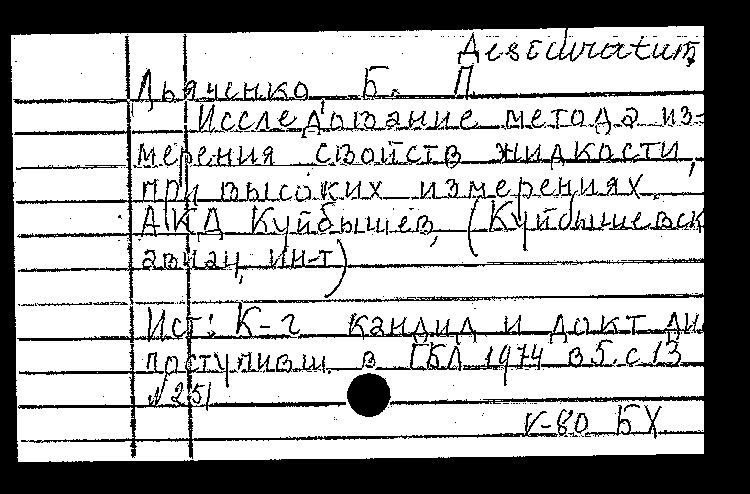 Desiduratum,
Дьяченко Б. П
Исследование метода из-
мерения свойств жидкости,
при высоких измерениях.
АКД Куйбышев, (Куйбышевск
авиац, ин-т)
Ист: К-г кандид и докт ди
поступивш. в ГБЛ 1974 в5. с13
N251
V-80 БХ.